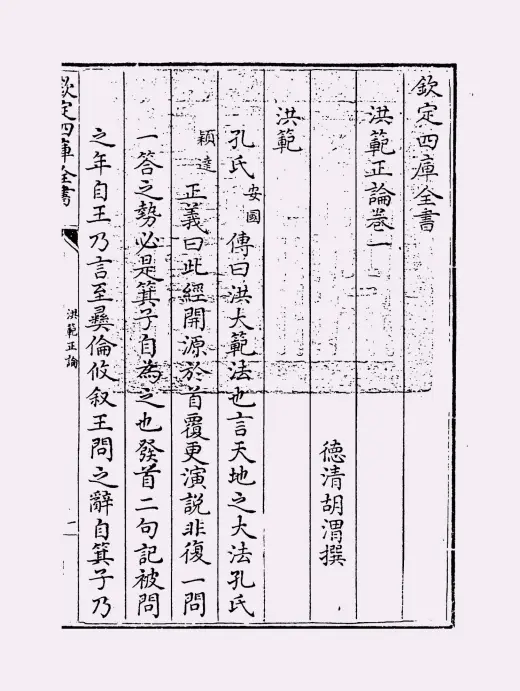 欽定四庫全書
洪範正論卷一
德清胡渭撰
洪範
孔氏安國傳曰洪大範法也言天地之大法孔氏
穎達正義曰此經開源於首覆更演說非復一問
一答之勢必是箕子自為之也發首二句記被問
之年自王乃言至彝倫攸叙王問之辭自箕子乃
欽定四庫全書
洪範正論
一